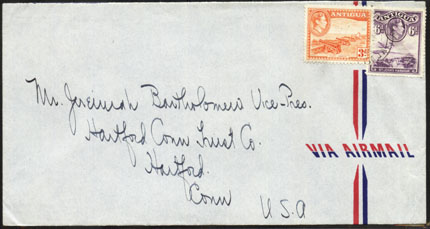 ANTIGUA
3d
ANTIGUA
6d 6d
Mr. Jeremiah Bartholomew Vice-Pres.
Hartford Conn Trust Co.
Hartford.
Conn
U.S.A
VIA AIRMAIL